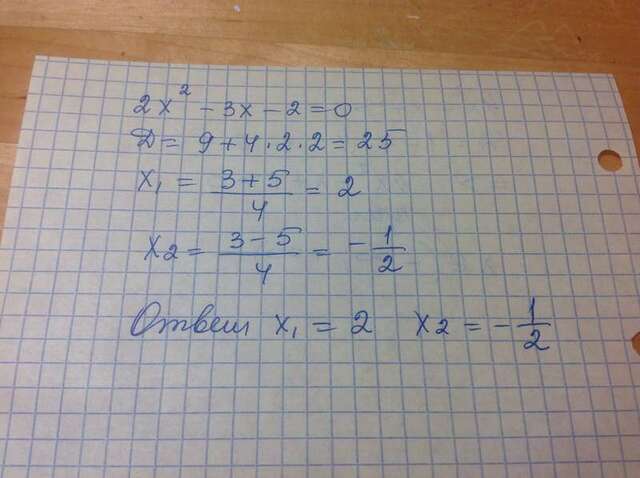 2x² - 3x - 2 = 0
Д = 9 + 4 · 2 · 2 = 25
x₁ = (3 + 5)/4 = 2
x2 = (3 - 5)/4 = -1/2
Ответ x₁ = 2 x2 = -1/2